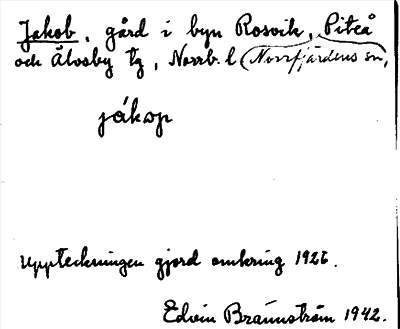 Jakob, gård i byn Rosvik, Piteå
och Älvsby tg, Norrb. l (Norrfjärdens sn,
jákɷp
Uppteckningen gjord omkring 1926.
Edvin Brännström 1942.